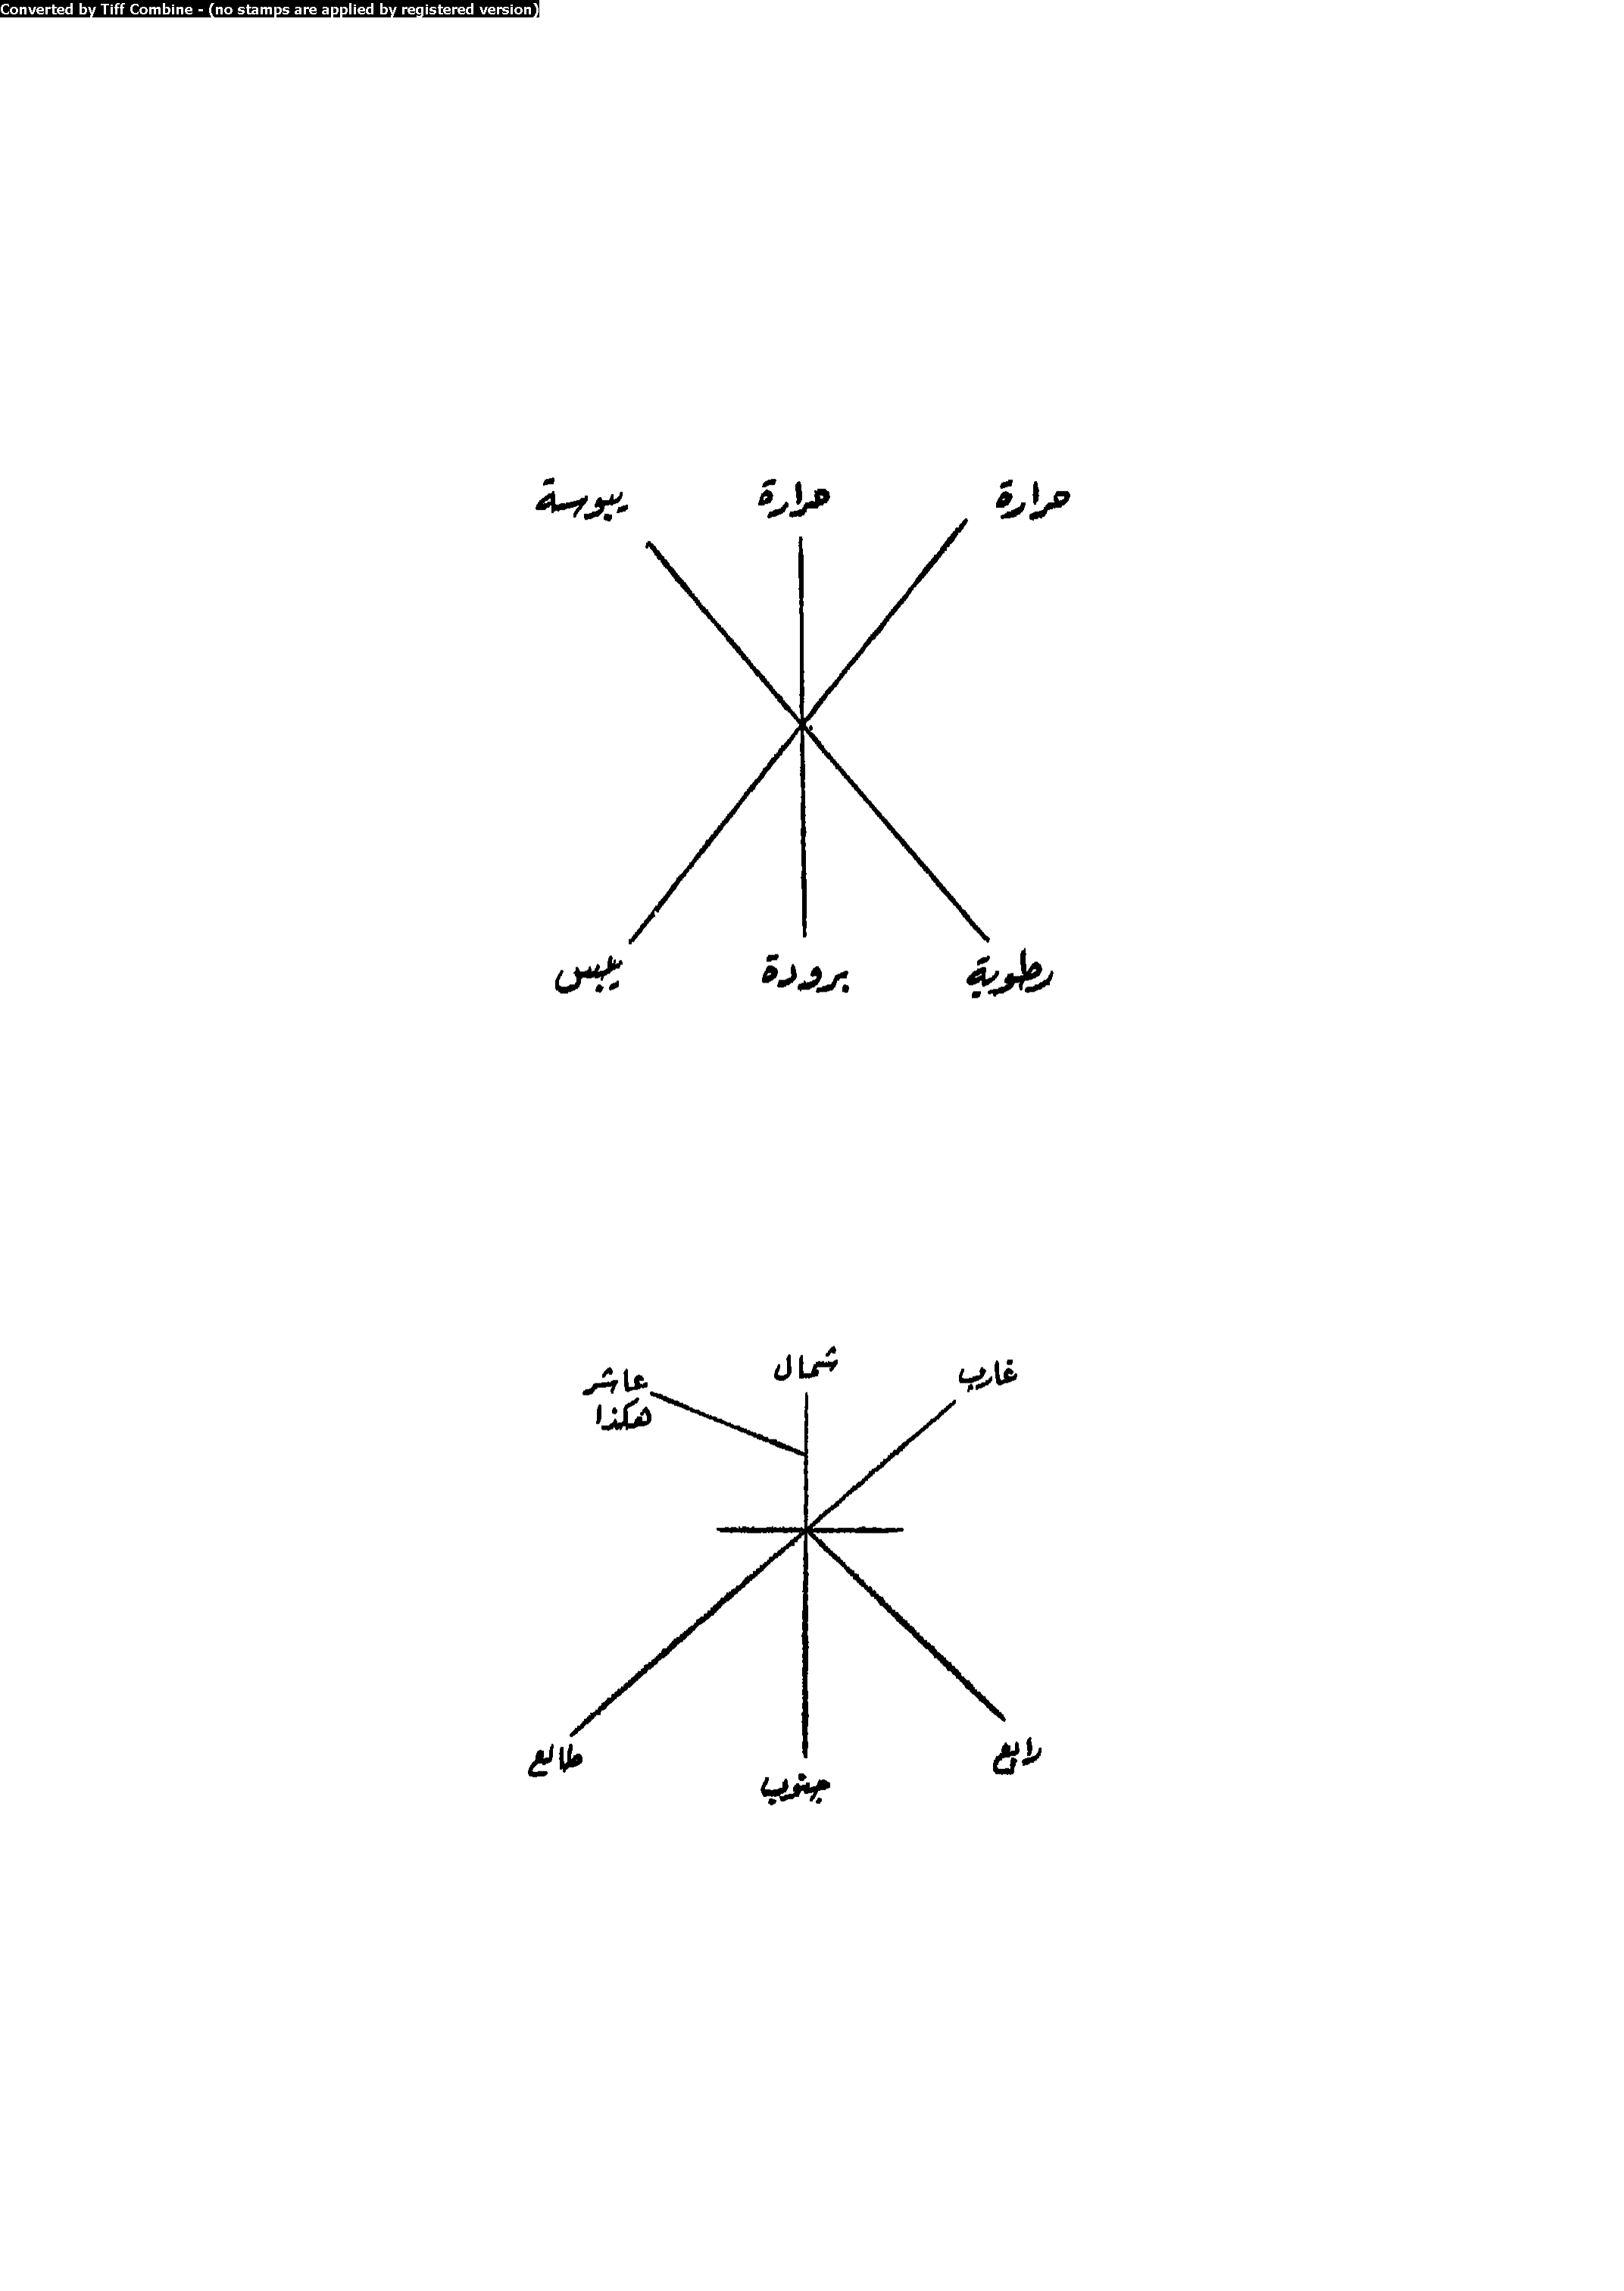 Converted by Tiff Combine - (no stamps are applied by registered version)
حرارة حرارة يبوسة
رطوبة برودة يلبس
غارب شمال عاشر
هكذا
رابع جنوب طالع